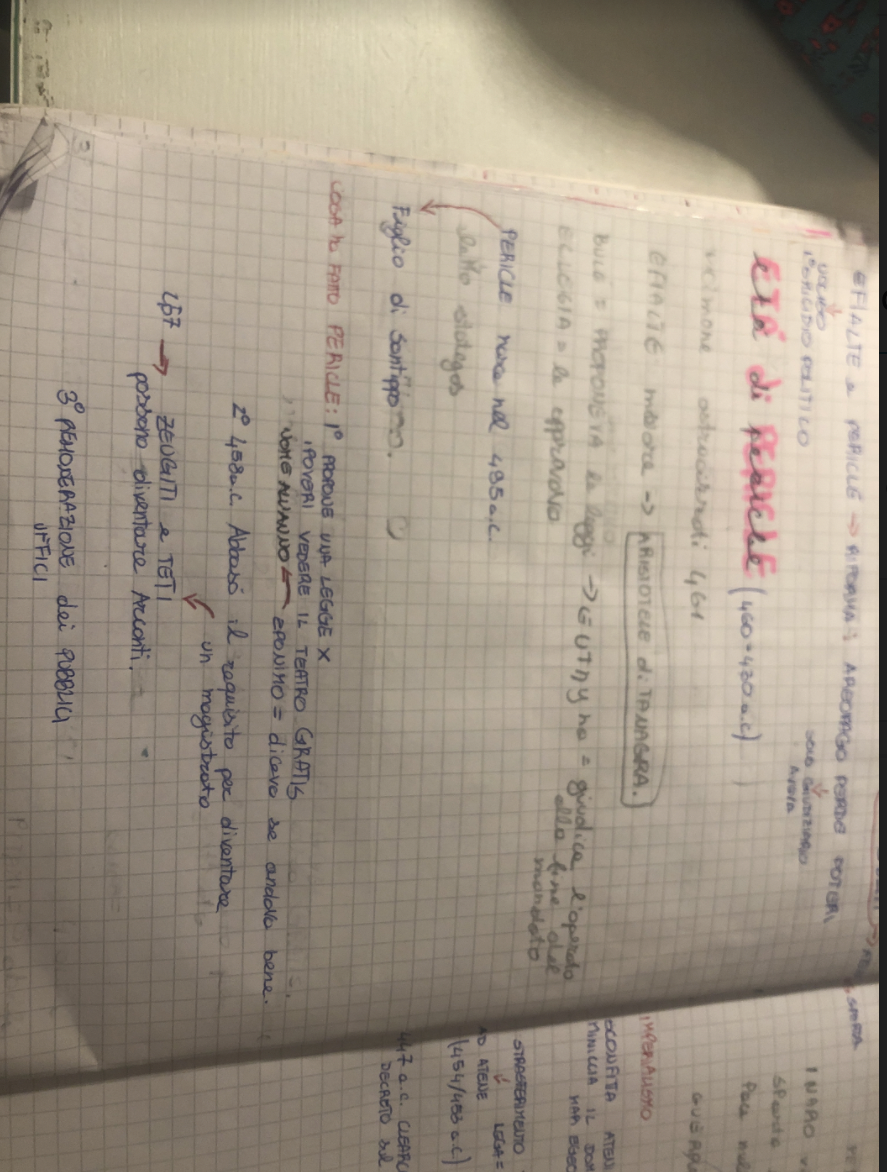 EFIALTE e PERICLE → RIFORMA: AREOPAGO PERDE POTERI
1° OMICIDIO POLITICO
SOLO GIUDIZIARIO
AVEVA
ETÀ di PERICLE (460-430 a.c)
cimone 461
EFIALTE muore → ARISTOTELE di TANAGRA.
BULE = PROPONEVA le leggi → EUTHYNA = giudica l'operato
alla fine del
mandato
ECLESIA = le approvava
PERICLE nasce nel 495 a.c.
eletto stratego
Figlio di Santippo.
COSA HA FATTO PERICLE: 1° PROPONE UNA LEGGE X
POVERI VEDERE IL TEATRO GRATIS
NOME ALL'ANNO ← EPONIMO = diceva se andava bene.
2° 458 a.c. Abbassò il requisito per diventare
un magistrato
457 → ZEUGITI e TETI
possono diventare Arconti.
3° REMUNERAZIONE dei PUBBLICI
UFFICI
SFERA
INARO
Sparta
Pace
IMPERIALISMO
SCONFITA ATENE
MINACCIA IL
MAR EGEO
STRASFERIMENTO LEGA =
AD ATENE
(454/453 a.c)
447 a.c. CLEARCO
DECRETO